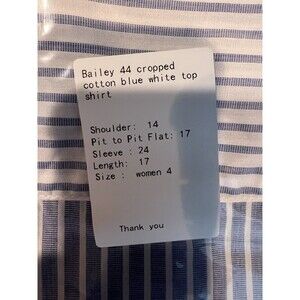 Bailey 44 cropped
cotton blue white top
shirt
Shoulder: 14
Pit to Pit Flat: 17
Sleeve : 24
Length: 17
Size : women 4
Thank you